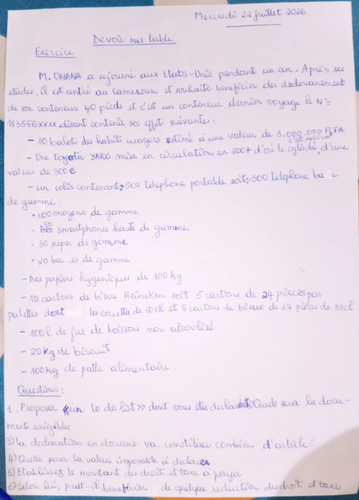 Mercredi 22 juillet 2026
Devoir sur table
Exercice
M. ONANA a sejourné aux Etats-Unis pendant un an. Après ses
etudes, il est entré au Cameroun et souhaite beneficier du dedouanement
de son conteneur 40 pieds et c'est un conteneur dernier voyage le N°
#3566xxxx disant contenir ses effet suivants :
- 10 balots des habits usagers estimé à une valeur de 3.000.000 FCFA
- Une toyota YARIS mise en circulation en 2007 d'où le cylindré d'une
valeur de 300€
- un colis contenant 500 telephone portable soit, 300 telephone bas e
de gamme
• 100 moyens de gamme
• smartphones haute de gamme
• 30 super de gamme
• 20 bas es de gamme
- Des papiers hygieniques de 100 kg
- 10 cartons de bière Heineken soit 5 cartons de 24 pièces par
palettes dont la canette de 50 cl et 5 cartons de bière de 24 pièces de 33cl
- 100 l de jus de boissons non alcoolisé
- 20 kg de biscuit
- 100 kg de patte alimentaire
Questions :
1. Proposer « un to do list » dont vous etes declarant Quels sera les docu-
ments exigibles
2) la declaration en douane va constituer combien d'article ?
4) Quelle sera la valeur imposable à declarer
5) Etablissez le montant du droit et taxe à payer
6) selon lui, peut-il beneficier de quelque reduction du droit et taxes